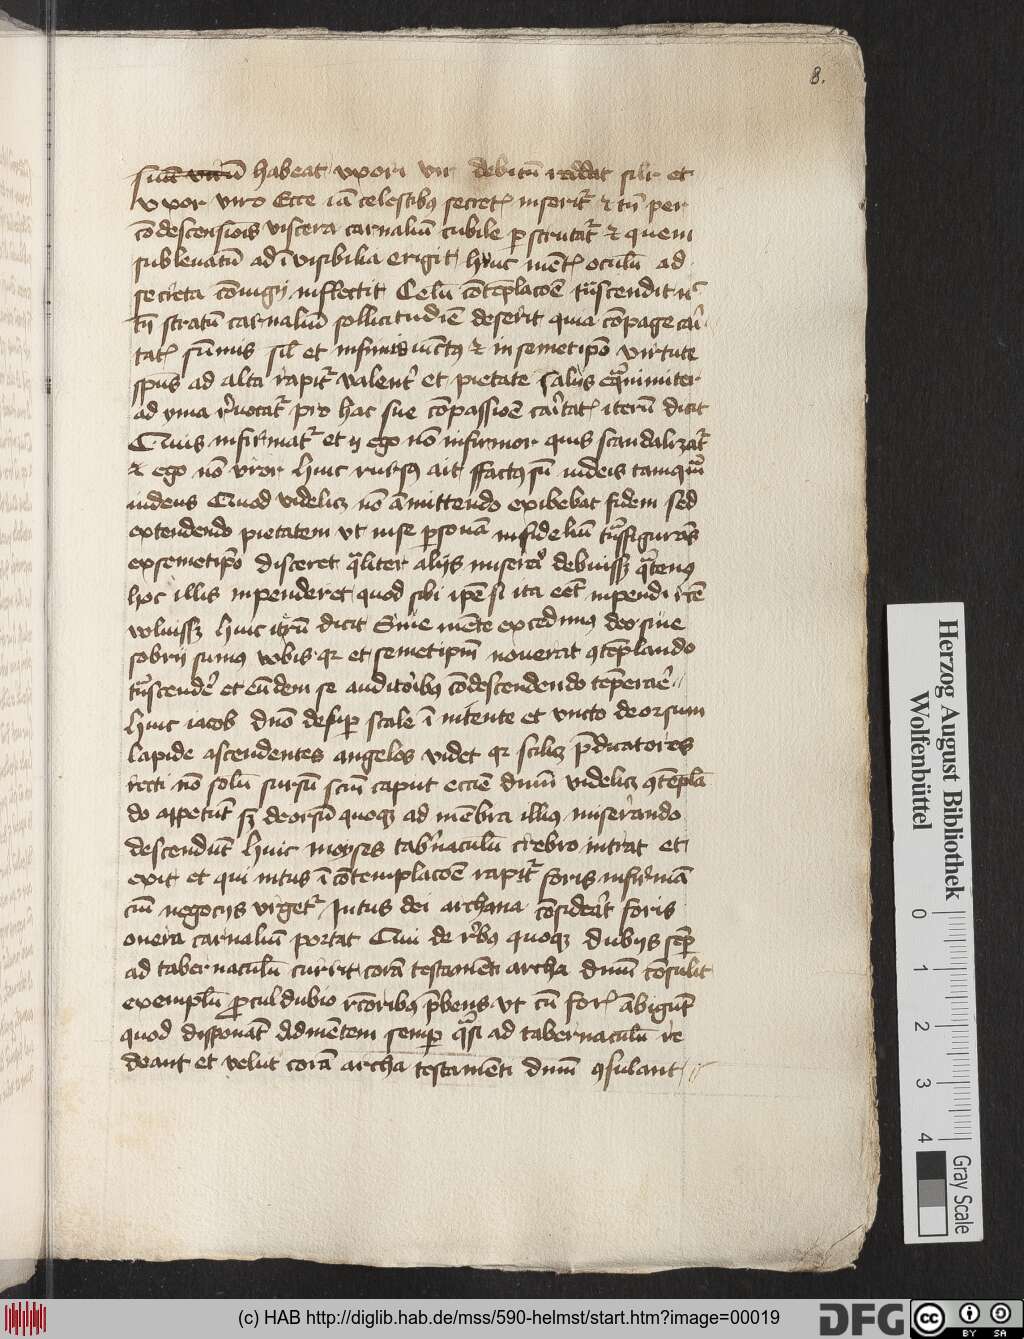 8.
suu virū habeat uxori vir debitū reddat silr et
uxor viro Ecce iā celestibꝰ secretꝭ inserit᷑ ⁊ tn̄ per
cōdescensiōis viscera carnaliū cubile ꝑscrutat᷑ ⁊ quem
sublevatū ad īvisibilia erigit hūc mētꝭ oculū ad
secreta cōiugij inflectit Celū cōtēplacōe trāscendit nꝭ
tn̄ stratū carnaliū sollicitudīe deserit quia cōpage cari
tatꝭ sūmis sil et infimis iūctꝰ ⁊ in semetip̄o virtute
spūs ad alta rapit᷑ valent᷑ et pietate in alijs eq̄nimiter
ad yma revocat᷑ pro hac sue cōpassiōe caritatꝭ iterū dicit
Quis infirmat᷑ et ego nō infirmor quis scandalizat᷑
⁊ ego nō uror hinc rursꝰ ait ffactꝰ sū iudeis tamqm̄
iudeus Quod videlicꝫ nō amittendo exibebat fidem sed
extendendo pietatem ut in se ꝑsonā infideliū trāsfigurās
ex semetip̄o disceret qualiter alijs misereri debuissꝫ qͣtenꝰ
hoc illis inpenderet quod sibi ip̄e si ita eēt inpendi rcē
voluissꝫ hinc iterū dicit Sive mente excedimꝰ deo sive
sobrij sumꝰ vobis qꝛ et semetipm̄ noverat ꝯtēplando
trāscendere et eūdem se auditoribꝰ cōdescendendo tēperare
hinc iacob dnō desuꝑ scale īnitente et uncto deorsum
lapide ascendentes angelos videt qꝛ scilicꝫ p̄dicatores
recti nō solū sursū scm̄ caput eccīe dnm̄ videlicꝫ ꝯtēplā
do appetūt sꝫ deorsū quoqꝫ ad mēbra illiꝰ miserando
descendūt hinc moyses tab̄naculū crebro intrat et
exit et qui intus ī cōtemplacōe rapit᷑ foris infirmā
ciū negocijs urget᷑ Intus dei archana cōsiderat foris
onera carnaliū portat Qui de reb̄ꝰ quoqꝫ dubijs semꝑ
ad tabernaculū currit corā testamēti archa dnm̄ cōsulit
exemplū ꝓculdubio rcōribꝰ p̄bens ut cū forꝭ ābigūt
quod disponāt ad mētem semꝑ qͣsi ad tabernaculū re
deant et velut corā archa testamēti dnm̄ ꝯsulant
Herzog August Bibliothek
Wolfenbüttel
0 1 2 3 4
Gray Scale
(c) HAB http://diglib.hab.de/mss/590-helmst/start.htm?image=00019
DFG
cc
BY SA